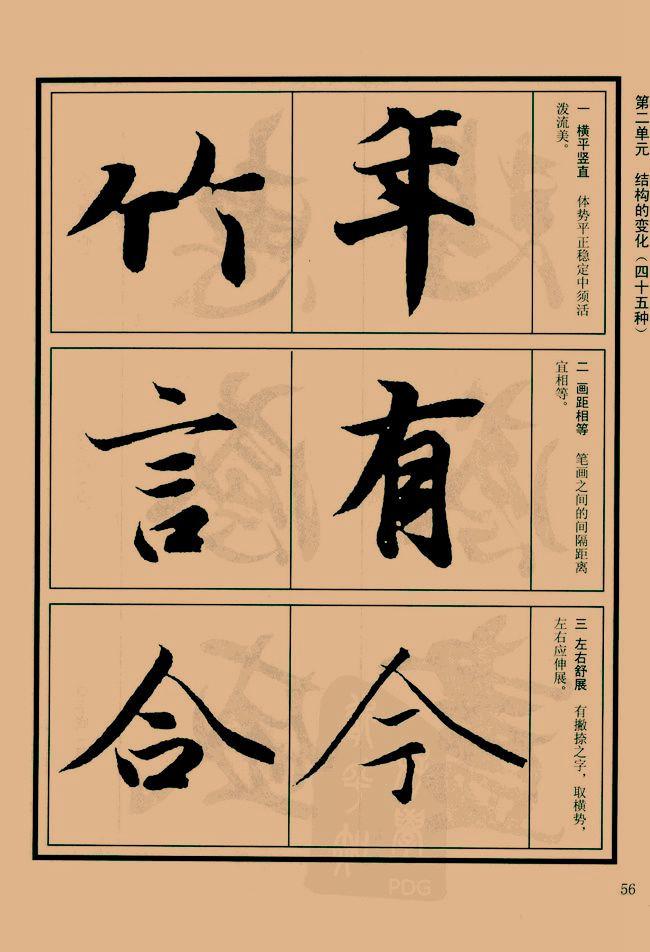 第二单元 结构的变化（四十五种）
一 横平竖直 体势平正稳定中须活
泼流美。
年
竹
二 画距相等 笔画之间的间隔距离
宜相等。
有
言
三 左右舒展 有撇捺之字，取横势，
左右应伸展。
今
合
PDG
56